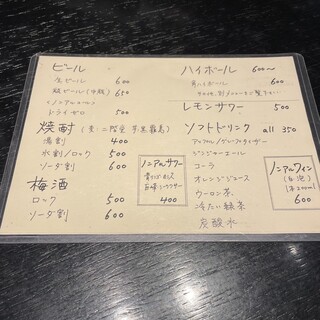 ビール
生ビール 600
瓶ビール(中瓶) 650
<ノンアルコール>
ドライゼロ 500
焼酎 (麦:二階堂 芋:黒霧島)
湯割 400
水割/ロック 500
ソーダ割 600
梅酒
ロック 500
ソーダ割 600
ノンアルサワー
400
ハイボール 600〜
角ハイボール 600
レモンサワー 500
ソフトドリンク all 350
アップル/グレープフルーツ
ジンジャーエール
コーラ
オレンジジュース
ウーロン茶
冷たい緑茶
炭酸水
ノンアルワイン
(白泡)
600